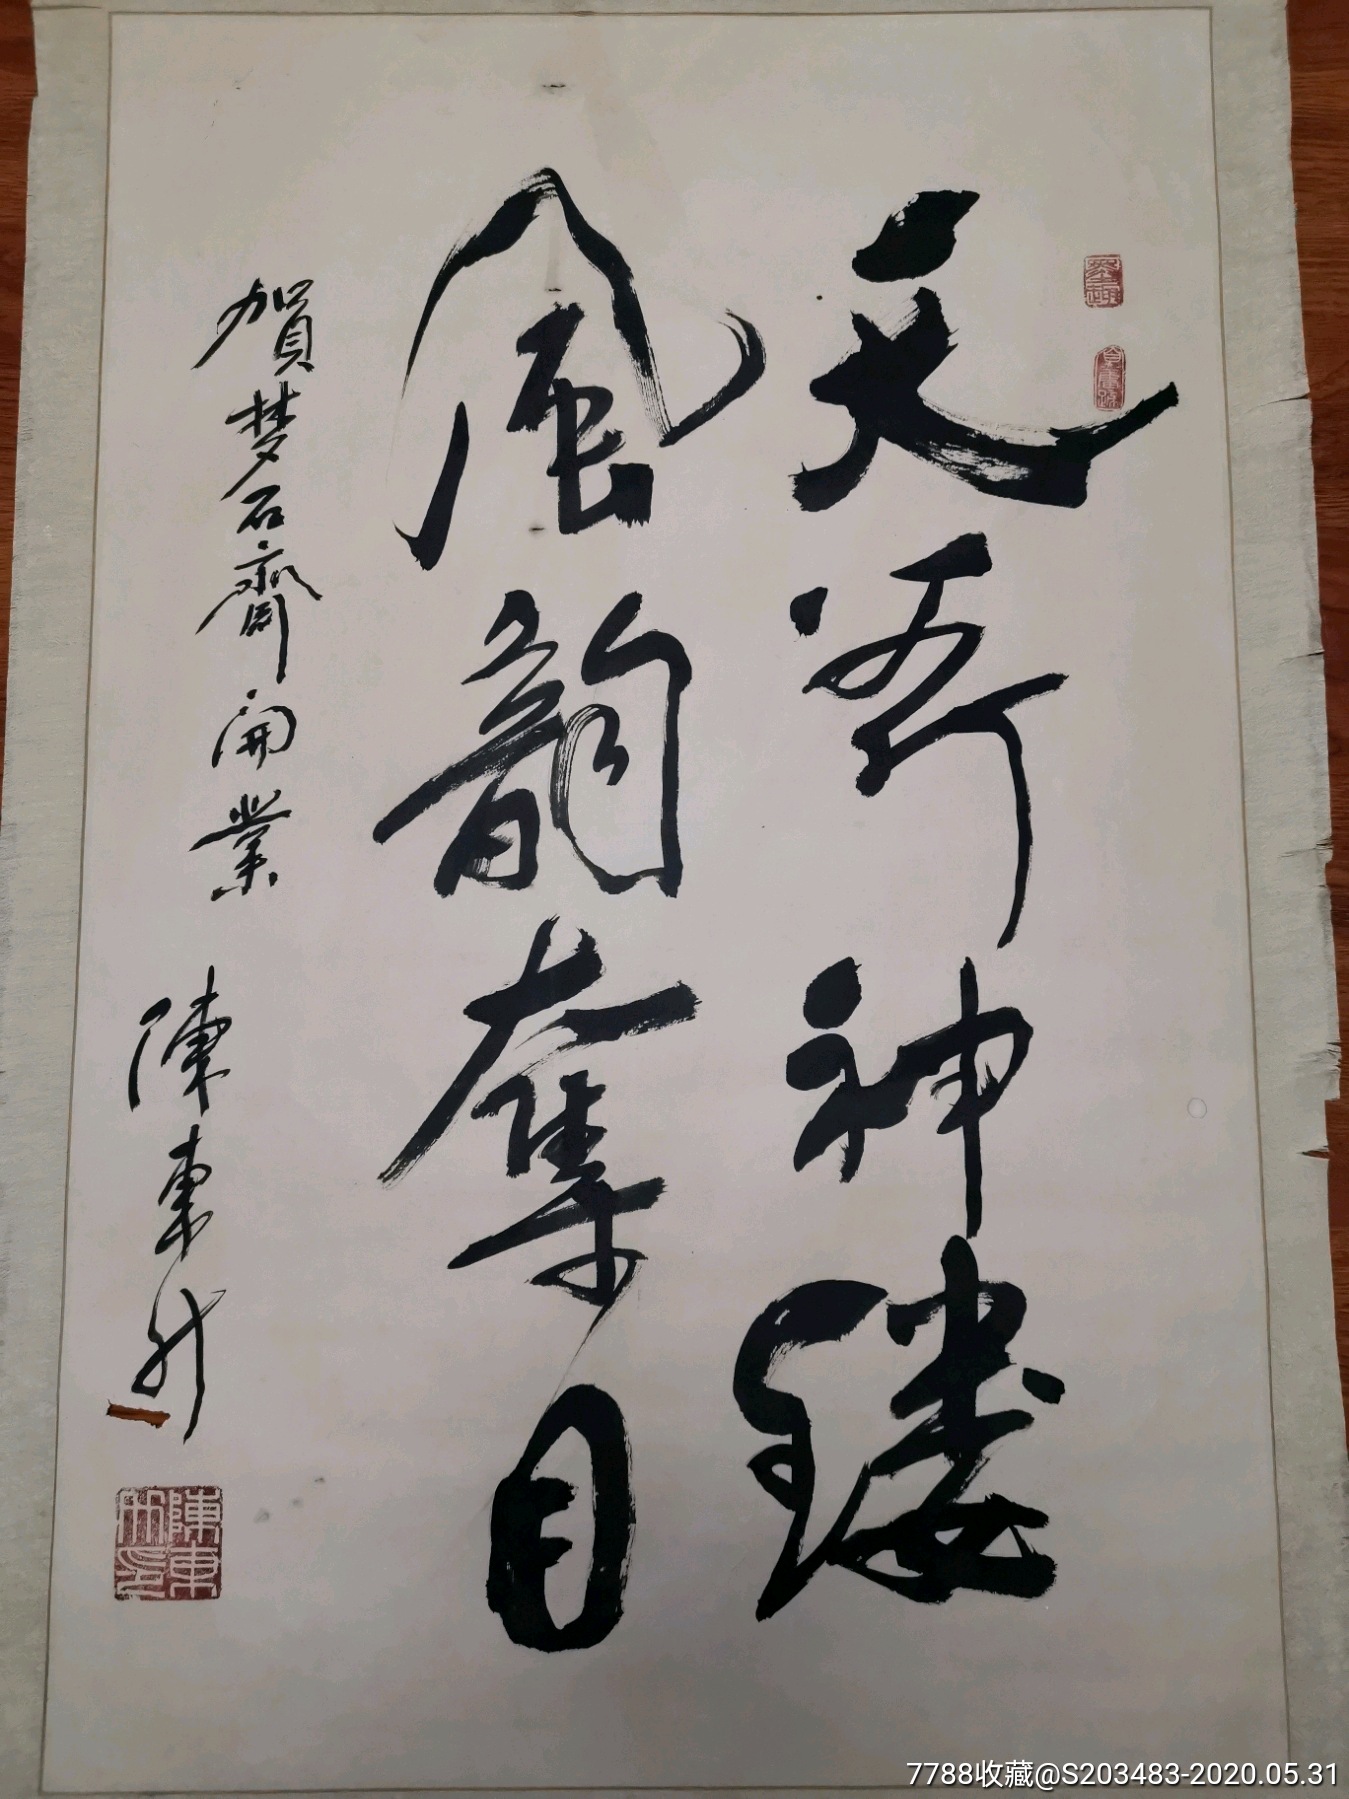 天琢神镂
風韻奪目
賀梦石齋開業
陳東升
陳東升印
7788收藏@S203483-2020.05.31